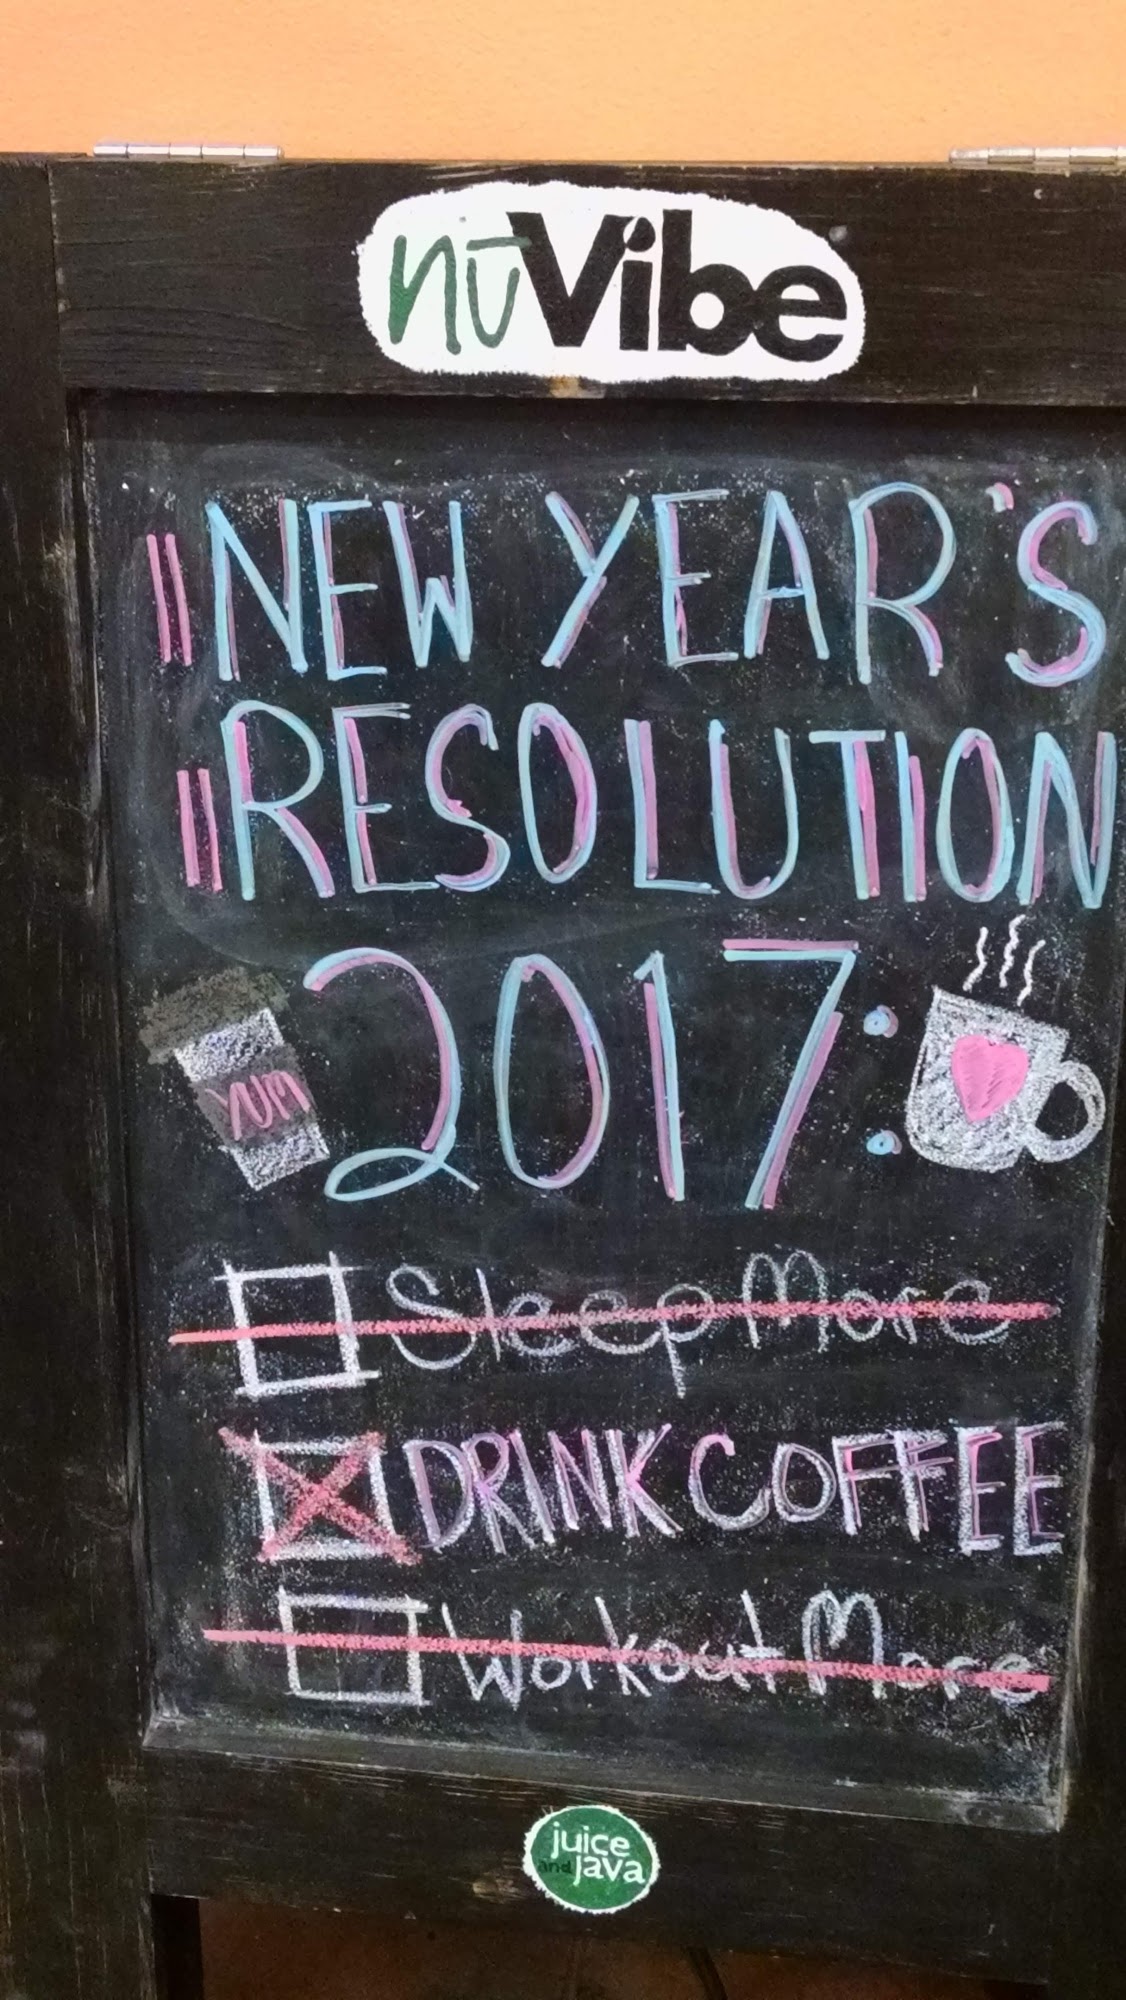 nūVibe
NEW YEAR'S
RESOLUTION
2017:
YUM
Sleep More
DRINK COFFEE
Workout More
juice
and java